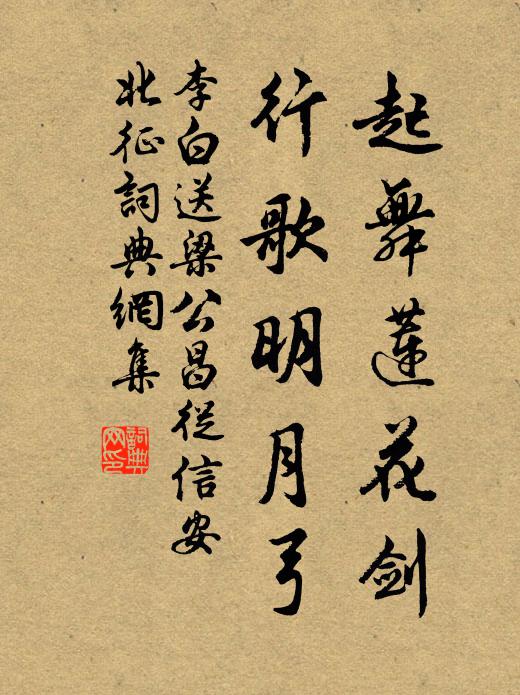 起舞蓮花剑
行歌明月弓
李白送梁公昌從信安
北征詞典網集
詞典
网印